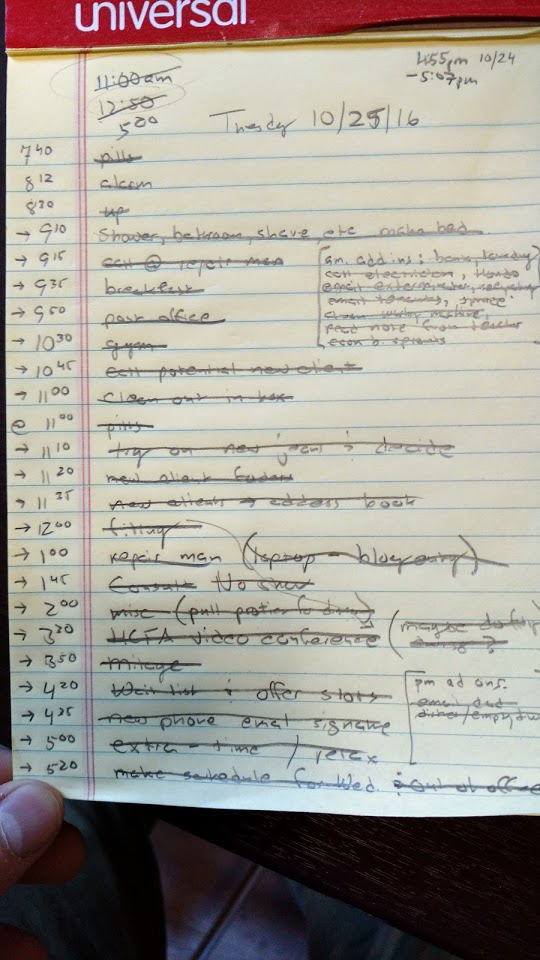 universal
4:55pm 10/24
- 5:07pm
11:00am
12:50
5:00
Tuesday 10/25/16
7:40 pills
8:12 alarm
8:30 up
→ 9:10 Shower, bathroom, shave, etc make bed
→ 9:15 call @ repair man
→ 9:35 breakfast
→ 9:50 post office
→ 10:30 gym
→ 10:45 call potential new client
→ 11:00 Clean out in box
@ 11:00 pills
→ 11:10 try on new jeans & decide
→ 11:20 new client folders
→ 11:35 new clients → address book
→ 12:00 filing
→ 1:00 repair man (laptop - blog entry)
→ 1:45 Consult No show
→ 2:00 misc (pull
→ 3:30 video conference (maybe do
during?
→ 3:50 mileage
→ 4:20 Wait list & offer slots
→ 4:35 new phone email signature
→ 5:00 extra - time / relax
→ 5:20 make schedule for Wed. & out of office
am. add ins: bank, laundry
call electrician,
email exterminator, recycling
email tenants,
clean
read note from teacher
pm ad ons.
email and